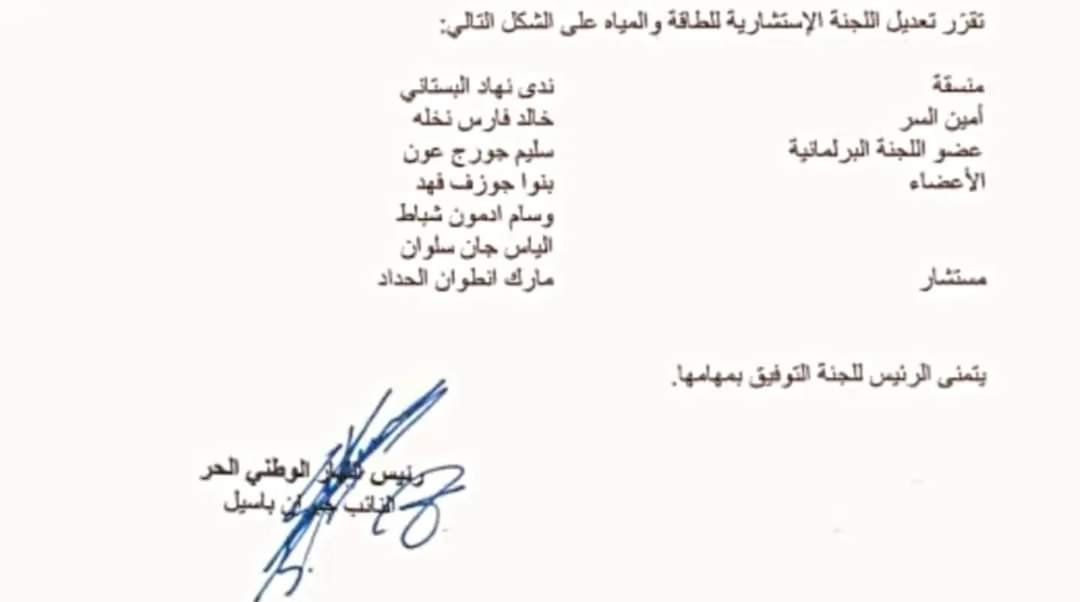 تقرّر تعديل اللجنة الإستشارية للطاقة والمياه على الشكل التالي:
منسقة ندى نهاد البستاني
أمين السر خالد فارس نخله
عضو اللجنة البرلمانية سليم جورج عون
الأعضاء بنوا جوزف فهد
وسام ادمون شباط
الياس جان سلوان
مستشار مارك انطوان الحداد
يتمنى الرئيس للجنة التوفيق بمهامها.
رئيس التيار الوطني الحر
النائب جبران باسيل